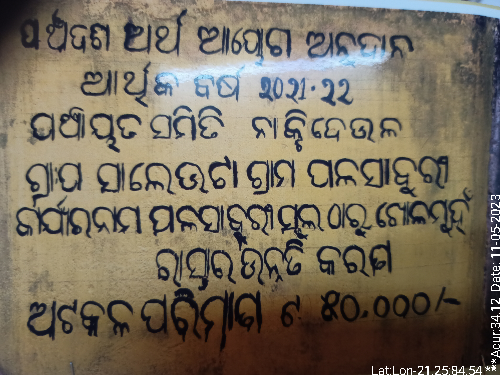 ପଞ୍ଚଦଶ ଅର୍ଥ ଆୟୋଗ ଅନୁଦାନ
ଆର୍ଥିକ ବର୍ଷ ୨୦୨୧-୨୨
ପଞ୍ଚାୟତ ସମିତି ନାକ୍ଟିଦେଉଳ
ଗ୍ରା.ପ ସାଲେଭଟା ଗ୍ରାମ ପଳସାବୁରୀ
କାର୍ଯ୍ୟରନାମ ପଳସାବୁରୀ ସ୍କୁଲ ଠାରୁ ଖୋଳମୁହଁ
ରାସ୍ତାର ଉନ୍ନତି କରଣ
ଅଟକଳ ପରିମାଣ ଟ ୫୦.୦୦୦/-
Lat:Lon-21.25:84.54 **Acur:34.12 Date: 11-05-2023